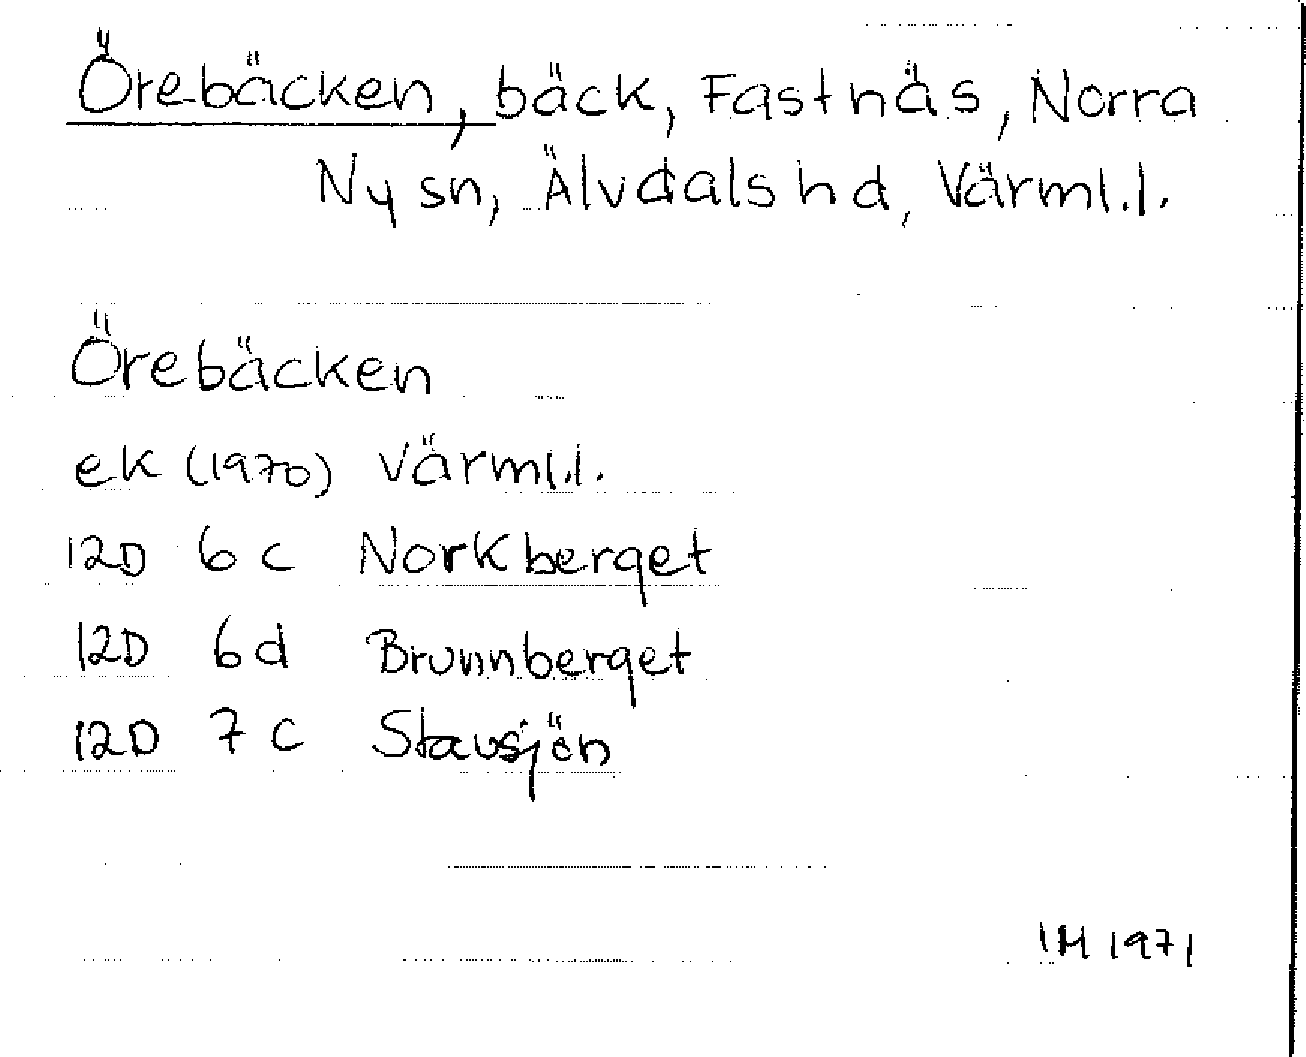 Örebäcken, bäck, Fastnäs, Norra
Ny sn, Älvdals hd, Värml.l.
Örebäcken
ek (1970) Värml.l.
12D 6c Norkberget
12D 6d Brunnberget
12D 7c Stavsjön
IM 1971